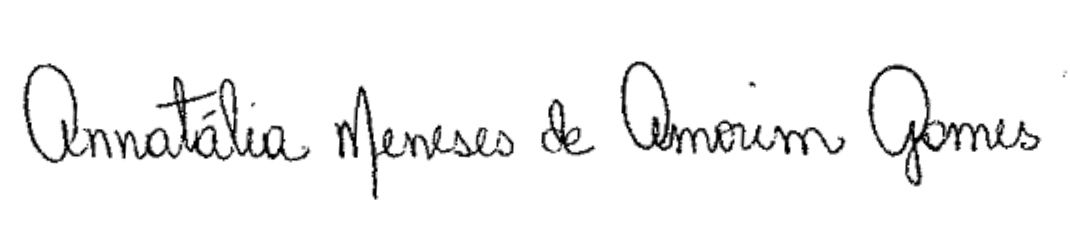 Annatália Meneses de Amorim Gomes